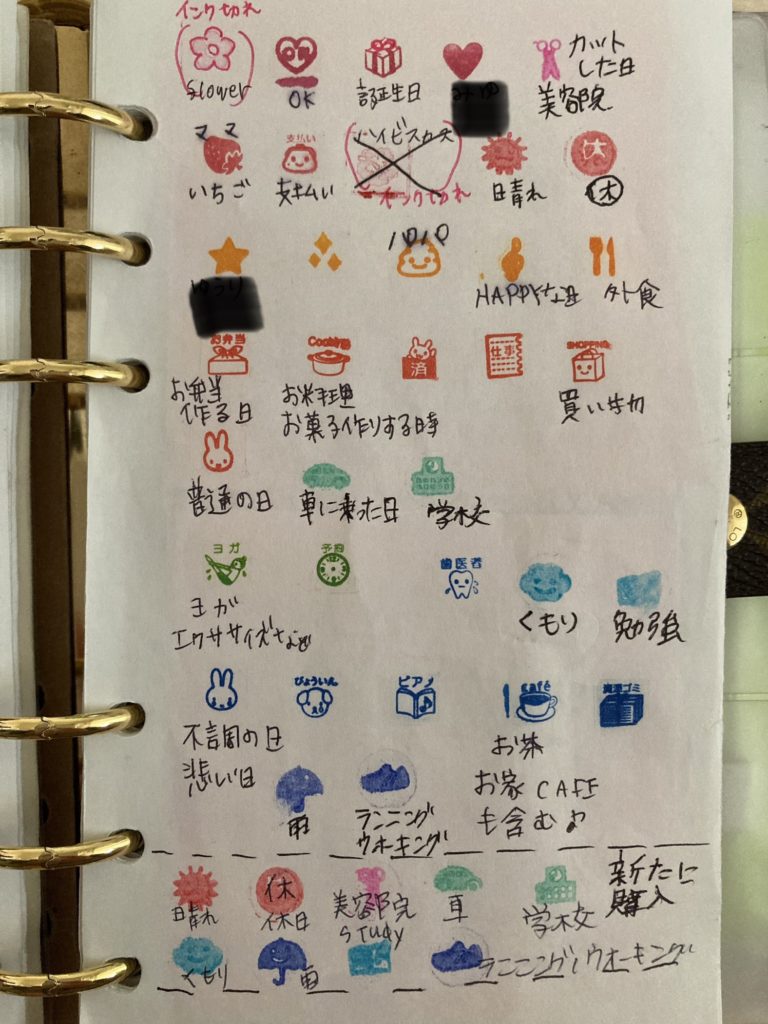 インク切れ
Slower
OK
誕生日
カット
した日
美容院
ママ
いちご
支払い
支払い
ハイビスカス
インク切れ
日晴れ
休
休
パパ
HAPPYな日
外食
お弁当
お弁当
作る日
Cooking
お料理
お菓子作りする時
済
仕事
SHOPPING
買い物
普通の日
車に乗った日
学校
ヨガ
ヨガ
エクササイズなど
予約
歯医者
くもり
勉強
不調の日
悲しい日
びょういん
ピアノ
Café
お茶
お家 CAFE
も含む♪
資源ゴミ
雨
ランニング
ウオーキング
新たに
購入
日晴れ
休
休日
美容院
STUDY
車
学校
くもり
雨
ランニング/ウオーキング